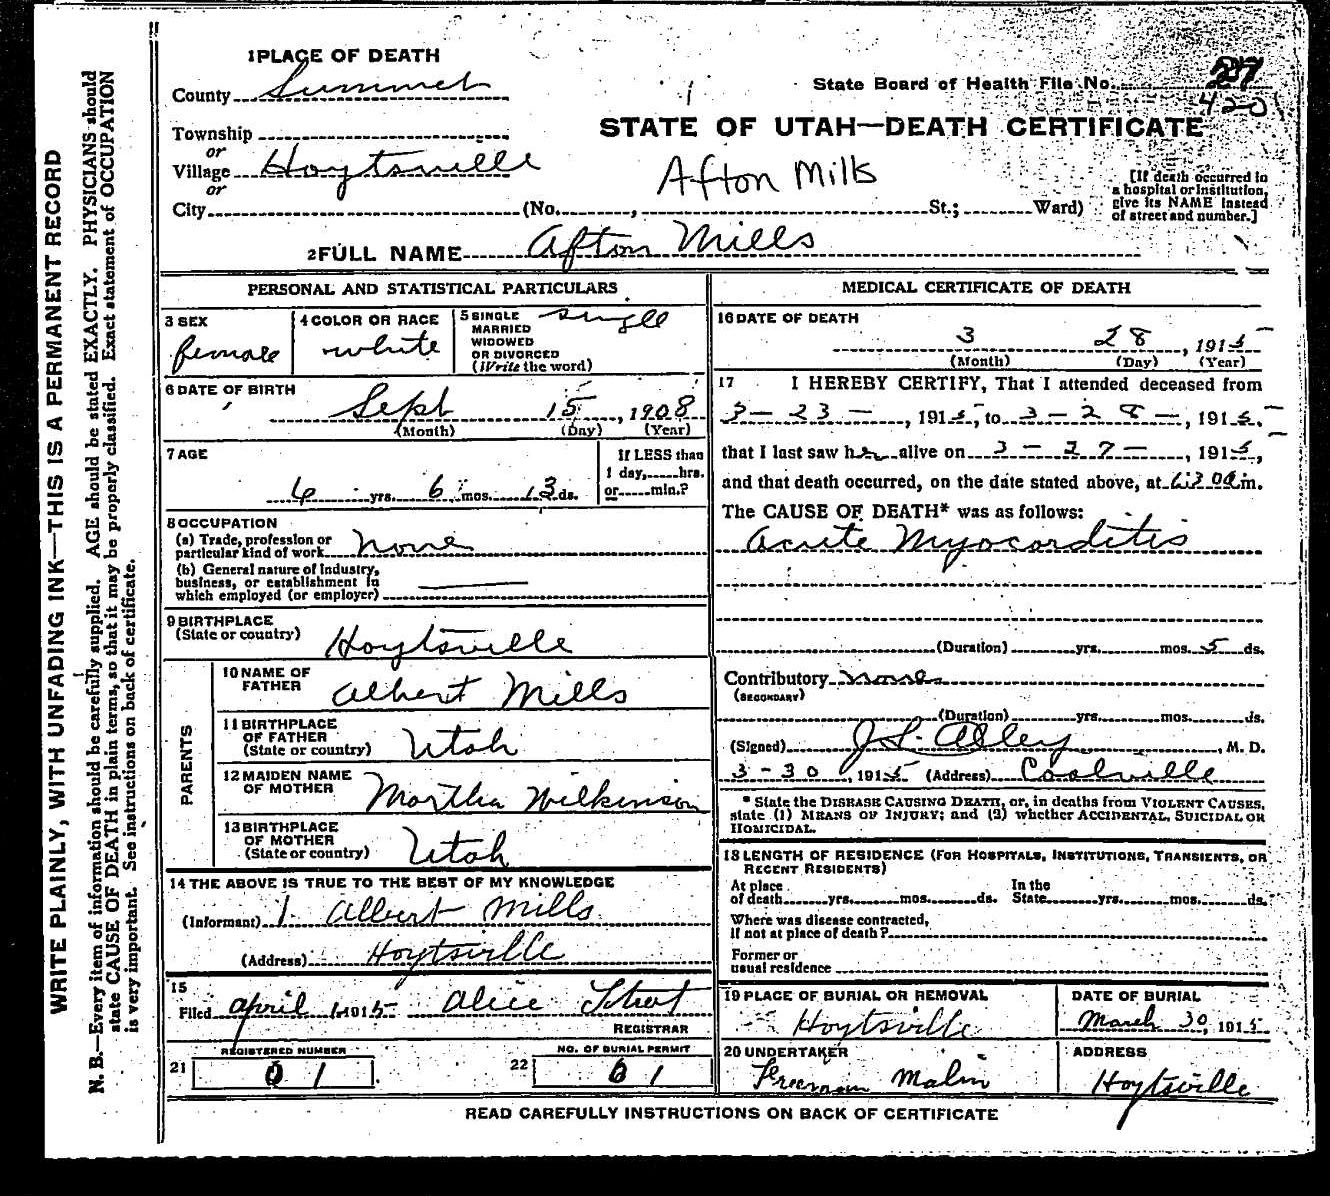 WRITE PLAINLY, WITH UNFADING INK—THIS IS A PERMANENT RECORD
N. B.—Every item of information should be carefully supplied. AGE should be stated EXACTLY. PHYSICIANS should
state CAUSE OF DEATH in plain terms, so that it may be properly classified. Exact statement of OCCUPATION
is very important. See instructions on back of certificate.
1 PLACE OF DEATH
County Summit
State Board of Health File No. 27
420
STATE OF UTAH—DEATH CERTIFICATE
Township
or
Village Hoytsville
or
Afton Mills
[If death occurred in
a hospital or institution,
give its NAME instead
of street and number.]
City (No. , St.; Ward)
2 FULL NAME Afton Mills
PERSONAL AND STATISTICAL PARTICULARS
3 SEX
female
4 COLOR OR RACE
white
5 SINGLE
MARRIED
WIDOWED
OR DIVORCED
(Write the word)
single
6 DATE OF BIRTH
Sept 15, 1908
(Month) (Day) (Year)
7 AGE
6 yrs. 6 mos. 13 ds.
If LESS than
1 day, hrs.
or min.?
8 OCCUPATION
(a) Trade, profession or
particular kind of work none
(b) General nature of industry,
business, or establishment in
which employed (or employer)
9 BIRTHPLACE
(State or country) Hoytsville
PARENTS
10 NAME OF
FATHER Albert Mills
11 BIRTHPLACE
OF FATHER
(State or country) Utah
12 MAIDEN NAME
OF MOTHER Martha Wilkinson
13 BIRTHPLACE
OF MOTHER
(State or country) Utah
14 THE ABOVE IS TRUE TO THE BEST OF MY KNOWLEDGE
(Informant) Albert Mills
(Address) Hoytsville
15
Filed April 1 1915 Alice
REGISTRAR
21 REGISTERED NUMBER
01
22 NO. OF BURIAL PERMIT
61
MEDICAL CERTIFICATE OF DEATH
16 DATE OF DEATH
3 28, 1915
(Month) (Day) (Year)
17 I HEREBY CERTIFY, That I attended deceased from
3-23-, 1915, to 3-28-, 1915,
that I last saw her alive on 3-27-, 1915,
and that death occurred, on the date stated above, at m.
The CAUSE OF DEATH* was as follows:
Acute Myocarditis
(Duration) yrs. mos. 5 ds.
Contributory none
(SECONDARY)
(Duration) yrs. mos. ds.
(Signed) , M. D.
3-30, 1915 (Address) Coalville
* State the DISEASE CAUSING DEATH, or, in deaths from VIOLENT CAUSES,
state (1) MEANS OF INJURY; and (2) whether ACCIDENTAL, SUICIDAL OR
HOMICIDAL.
18 LENGTH OF RESIDENCE (FOR HOSPITALS, INSTITUTIONS, TRANSIENTS, OR
RECENT RESIDENTS)
At place
of death yrs. mos. ds.
In the
State yrs. mos. ds.
Where was disease contracted,
if not at place of death?
Former or
usual residence
19 PLACE OF BURIAL OR REMOVAL
Hoytsville
DATE OF BURIAL
March 30, 1915
20 UNDERTAKER
Freeman Malin
ADDRESS
Hoytsville
READ CAREFULLY INSTRUCTIONS ON BACK OF CERTIFICATE